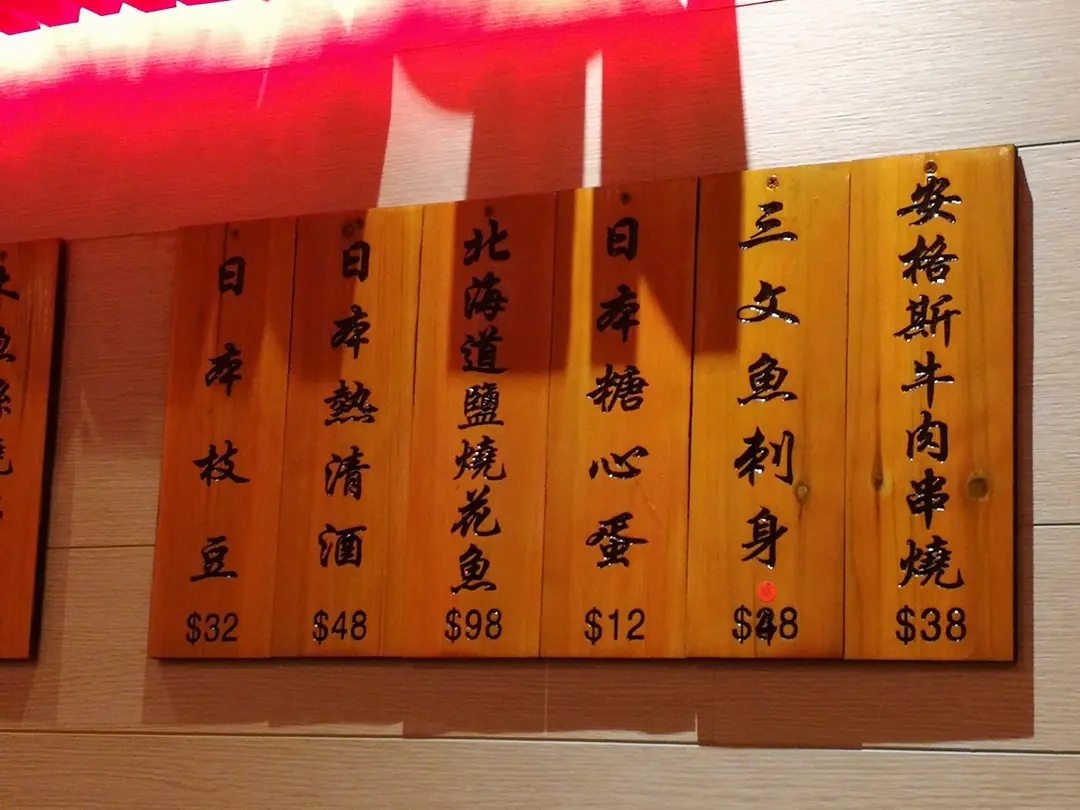 安格斯牛肉串燒
$38
三文魚刺身
日本糖心蛋
$12
北海道鹽燒花魚
$98
日本熱清酒
$48
日本枝豆
$32